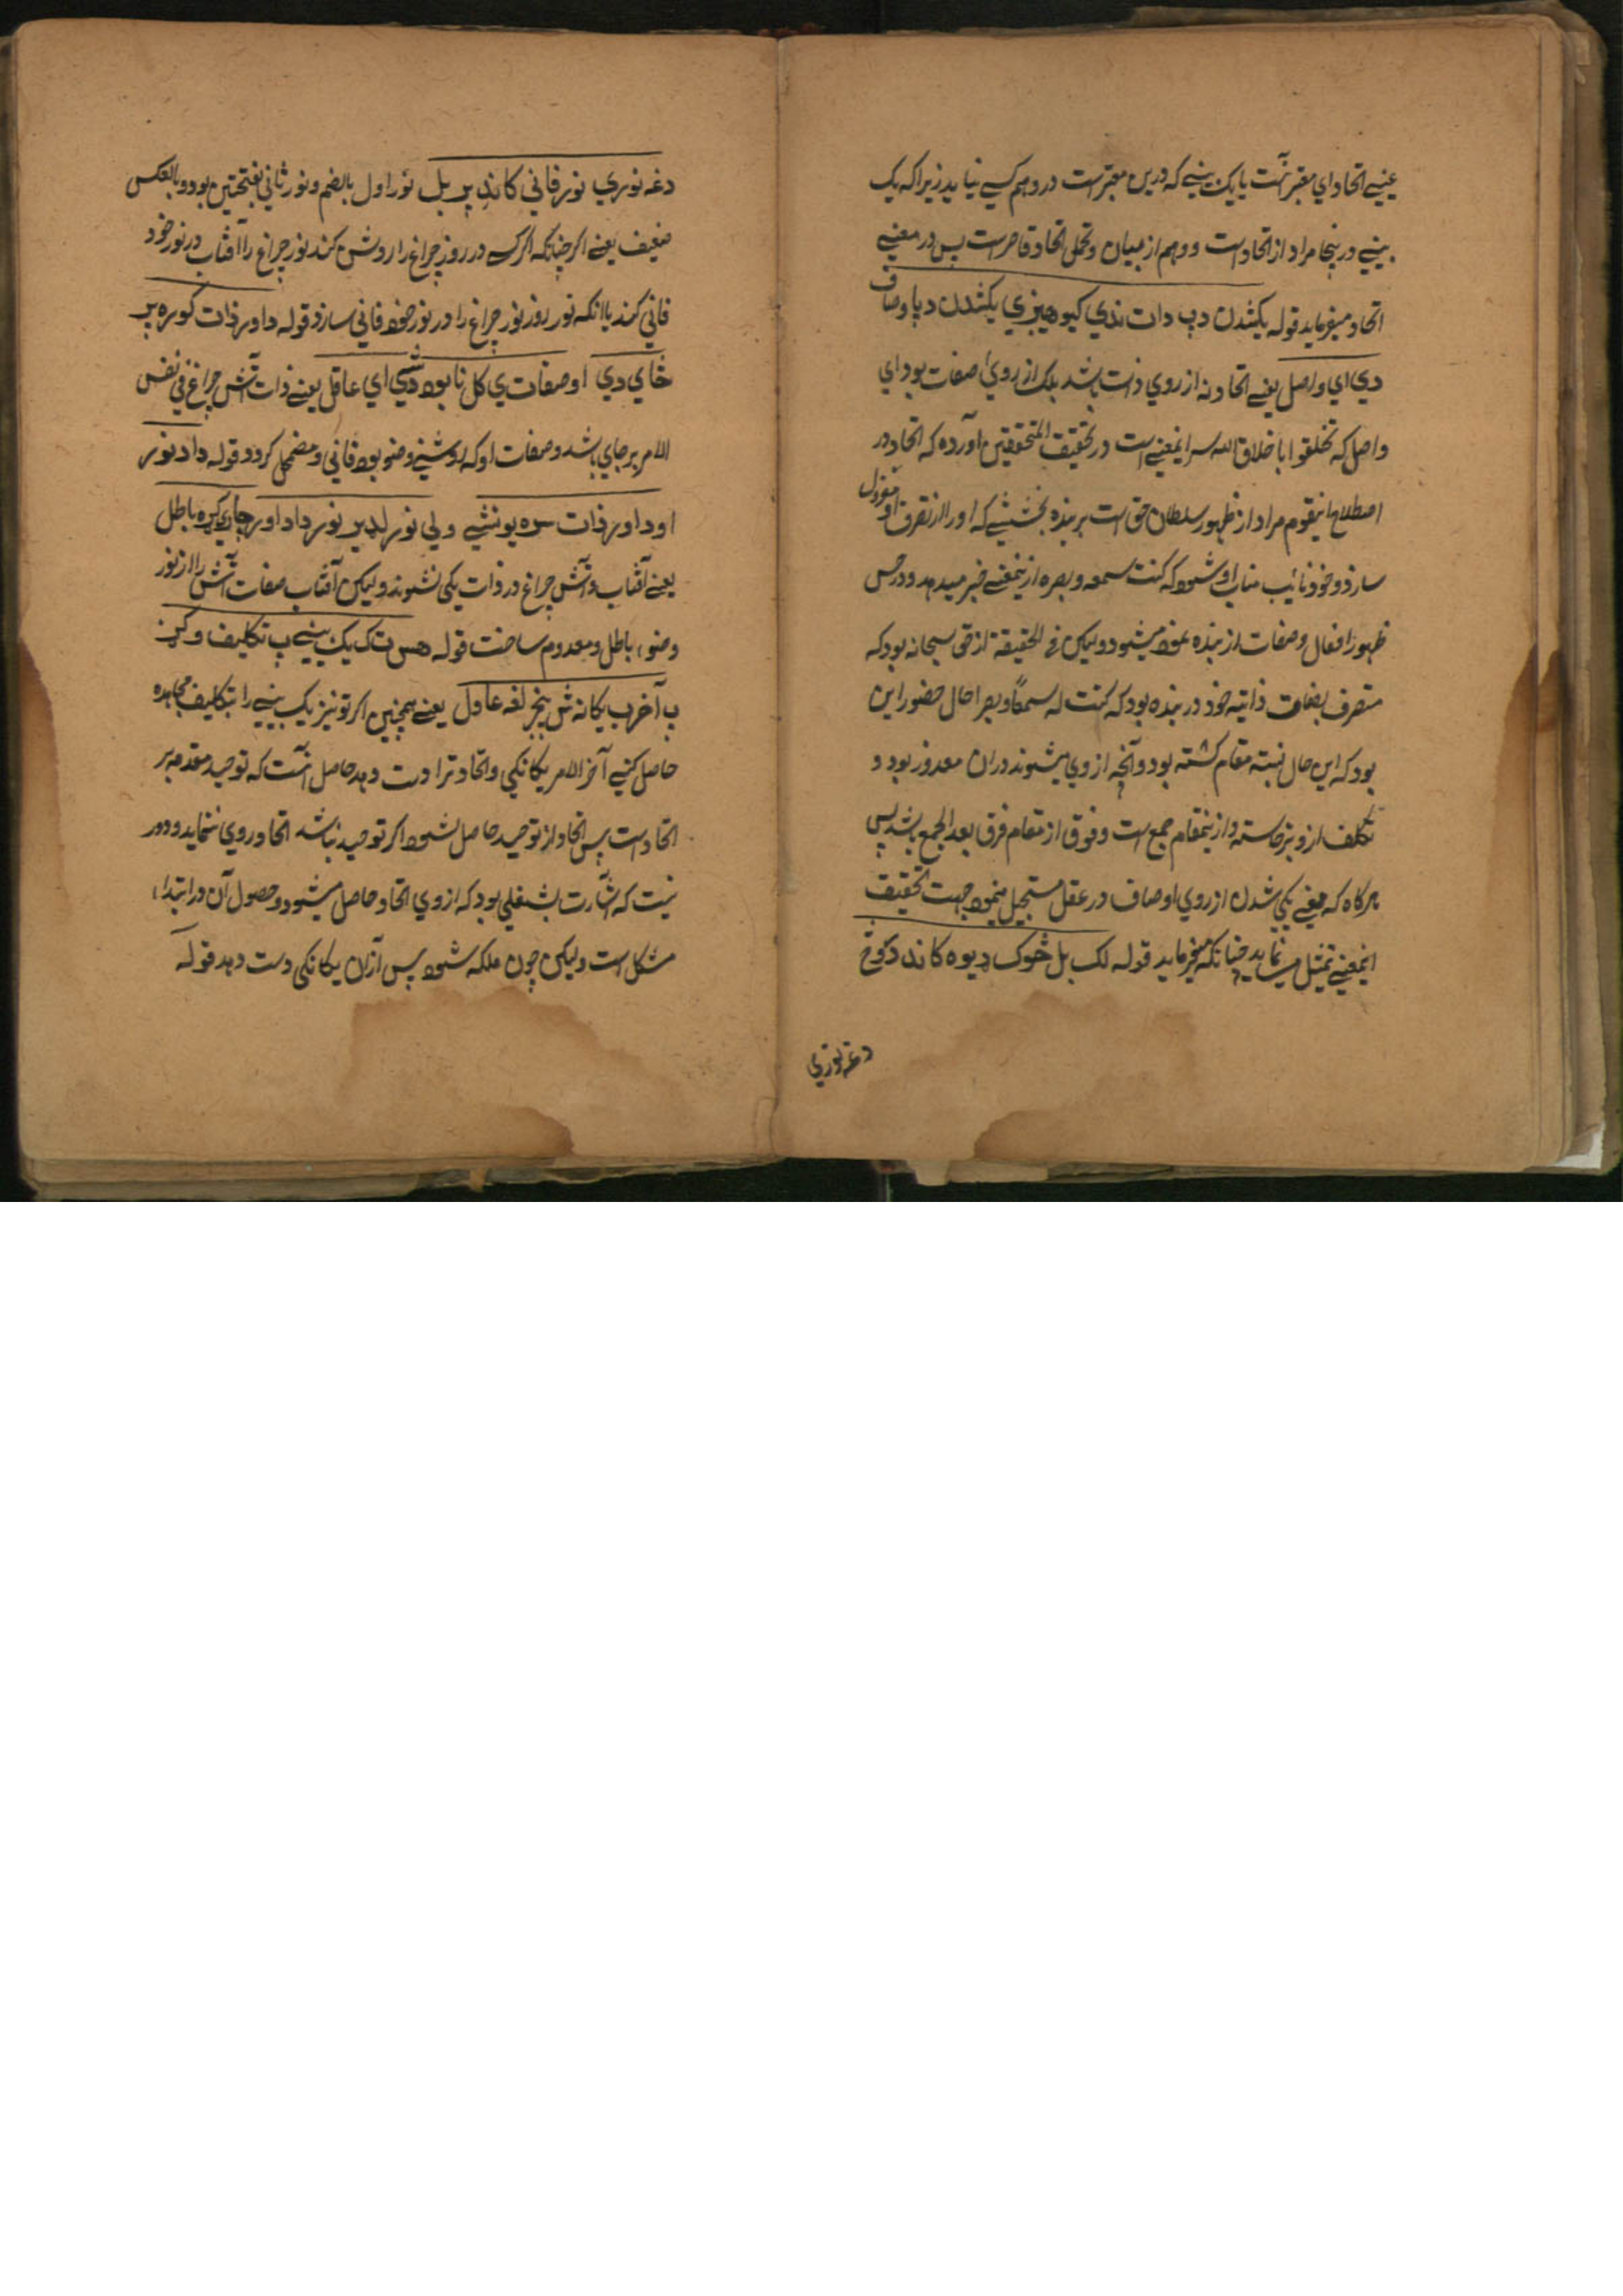 عینیے اتحاد ای معتبر نیست یا یک بینے که درین معتبر است در وهم کسے نیاید زیرا که یک
بینے درینجا مراد از اتحاد است و وهم از میان و تحمل اتحاد قاصر است پس در معنے
اتحاد میفرماید قوله یکشدن دپ دات ندي کیوهیزي یکشدن دپاوصاف
دي اي واصل یعنے اتحاد نه از روي ذات باشد بلکه از روي صفات بود اي
واصل که تخلقوا باخلاق الله سر اینمعنے است در تحقیقت المتحققین آورده که اتحاد در
اصطلاح اینقوم مراد از ظهور سلطان حق است بر بنده بخشیتے که او را از تصرف او معزول
سازد و خود نائب مناب او شود که کنت سمعه و بصره ازینمعنے خبر میدهد و در حس
ظهور افعال و صفات از بنده نمود میشود ولیکن فے الحقیقة از حق سبحانه بود که
متصرف بصفات ذاتیه خود در بنده بود که کنت له سمعًا و بصرا حال حضور این
بود که این حال نسبته مقام گشته بود و آنچه از وي میشنوند دران معذور بود و
تکلف ازو برخاسته و ازینمقام جمع است و فوق از مقام فرق بعد الجمع باشد پس
هرگاه که معنے یکي شدن از روي اوصاف در عقل مستحیل مینمود جهت تحقیق
اینمعنے تمثیل مینماید چنانکه میفرماید قوله لک بل څوک ډیوه کاندد کوځ
دغه نوري
دغه نوري نور فاني کاندپر بل نور اول بالضم و نور ثاني بفتحتین بود و بالعکس
ضعیف یعنے اگر چنانکه اگر کسے در روز چراغ را روشن کند نور چراغ را آفتاب در نور خود
فاني کند یا آنکه نور روز نور چراغ را در نور خود فاني سازد قوله داور ذات کوره پر
ځاي دي اوصفات ي کل نابود شي اي عاقل یعنے ذات آتش چراغ في نفس
الامر بر جاي باشد و صفات او که روشنے و ضو بود فاني و مضمحل گردد قوله دادنور
اوداور ذات سره یونشي ولي نور لدیر نور داداور جاري کړه باطل
یعنے آفتاب و آتش چراغ در ذات یکي نشوند ولیکن آفتاب صفات آتش را از نور
و ضوء باطل و معدوم ساخت قوله هس تک یک بینے پ تکلیف وکړ
پ آخر ب یکانه ش پنجر لغه عاول یعنے همچنین اگر تو نیز یک بینے را بتکلیف مجاهده
حاصل کنے آخر الامر یگانگي و اتحاد ترا دست دهد حاصل آنست که توحید مقدمه بر
اتحاد است پس اتحاد از توحید حاصل شود اگر توحید نباشد اتحاد روي ننماید و دور
نیست که اشارت بشغلي بود که از وي اتحاد حاصل میشود و حصول آن در ابتداء
مشکل است ولیکن چون ملکه شود پس ازان یگانگي دست دهد قوله